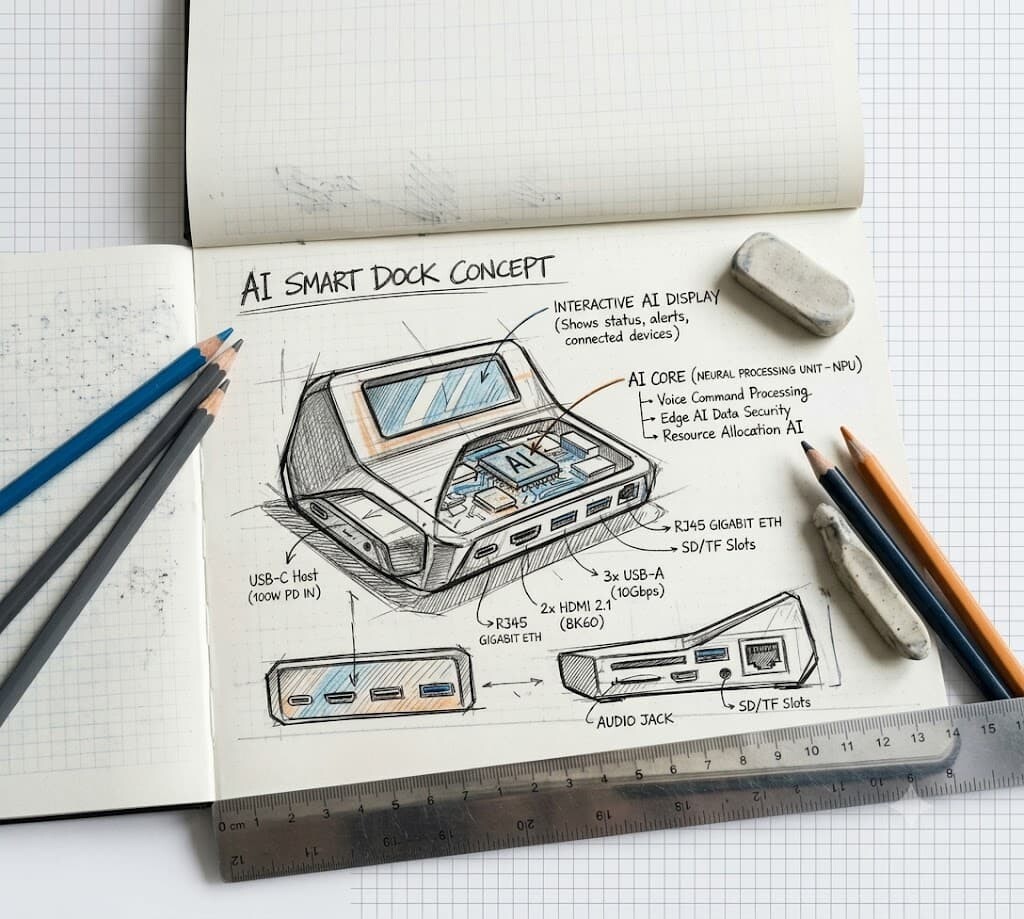 AI SMART DOCK CONCEPT
INTERACTIVE AI DISPLAY
(Shows status, alerts,
connected devices)
AI CORE (NEURAL PROCESSING UNIT-NPU)
Voice Command Processing
Edge AI Data Security
Resource Allocation AI
AI
RJ45 GIGABIT ETH
SD/TF Slots
3x USB-A
(10Gbps)
2x HDMI 2.1
(8K60)
R345
GIGABIT ETH
USB-C Host
(100W PD IN)
AUDIO JACK
SD/TF Slots
0 cm 1 2 3 4 5 6 7 8 9 10 11 12 13 14 15